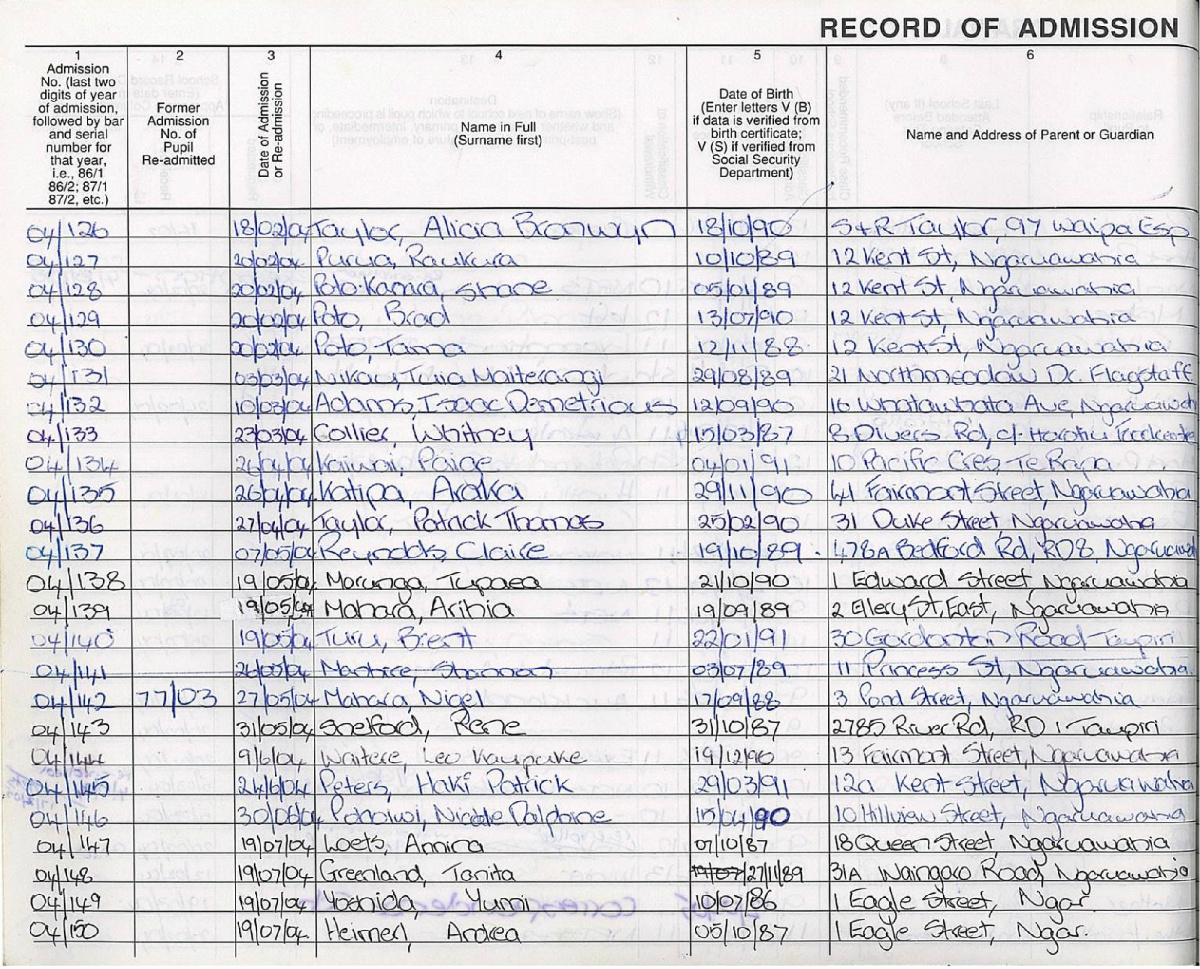 RECORD OF ADMISSION
1 2 3 4 5 6
Admission No. (last two digits of year of admission, followed by bar and serial number for that year, i.e., 86/1 86/2; 87/1 87/2, etc.)
Former Admission No. of Pupil Re-admitted
Date of Admission or Re-admission
Name in Full (Surname first)
Date of Birth (Enter letters V (B) if data is verified from birth certificate; V (S) if verified from Social Security Department)
Name and Address of Parent or Guardian
04/126 18/02/04 Taylor, Alicia Bronwyn 18/10/90 S+R Taylor, 97 Waipa Esp
04/127 20/02/04 Purua, Raukura 10/10/89 12 Kent St, Ngaruawahia
04/128 20/02/04 Poto-Kamara, Shane 05/01/89 12 Kent St, Ngaruawahia
04/129 20/02/04 Poto, Brad 13/07/90 12 Kent St, Ngaruawahia
04/130 20/02/04 Poto, Taina 12/11/88 12 Kent St, Ngaruawahia
04/131 03/03/04 Nikau, Maiterangi 29/08/89 21 Northmeadow Dr. Flagstaff
04/132 10/03/04 Adams, Isaac Demetrious 12/09/90 16 Whatawhata Ave, Ngaruawah
04/133 23/03/04 Collier, Whitney 15/03/87 8 Divers Rd, c/- Horotiu
04/134 26/04/04 Kaiwai, Paige 04/01/91 10 Pacific Cres, Te Rapa
04/135 26/04/04 Katipa, Araka 29/11/90 41 Fairmont Street, Ngaruawahia
04/136 27/04/04 Taylor, Patrick Thomas 25/02/90 31 Duke Street Ngaruawahia
04/137 07/05/04 Reynolds Claire 19/10/89 478A Bedford Rd, RD8, Ngaruawah
04/138 19/05/04 Morunga, Tupaea 21/10/90 1 Edward Street, Ngaruawahia
04/139 19/05/04 Mahara, Arihia 19/09/89 2 Ellery St, East, Ngaruawahia
04/140 19/05/04 Turu, Brent 22/01/91 30 Gordonton Road Taupiri
04/141 26/05/04 Shannan 03/07/89 11 Princess St, Ngaruawahia
04/142 77/03 27/05/04 Mahara, Nigel 17/09/88 3 Pond Street, Ngaruawahia
04/143 31/05/04 Shelford, Rene 31/10/87 2785 River Rd, RD 1 Taupiri
04/144 9/6/04 Waitere, Leo 19/12/90 13 Fairmont Street, Ngaruawahia
04/145 24/6/04 Peters, Haki Patrick 29/03/91 12a Kent Street, Ngaruawahia
04/146 30/06/04 Nicole Dalphine 15/04/90 10 Hillview Street, Ngaruawahia
04/147 19/07/04 Loets, Annina 07/10/87 18 Queen Street, Ngaruawahia
04/148 19/07/04 Greenland, Tanita 27/11/89 31A Waingaro Road, Ngaruawahia
04/149 19/07/04 Yoshida, Yumi 10/07/86 1 Eagle Street, Ngar.
04/150 19/07/04 Heimerl, Andrea 05/10/87 1 Eagle Street, Ngar.